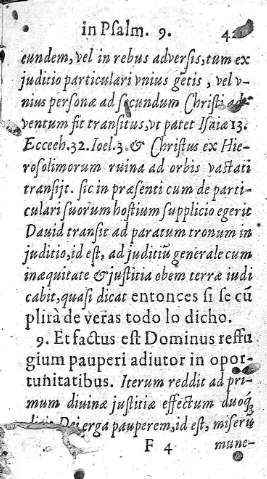 in Psalm. 9. 4
eundem, vel in rebus adversis, tum ex
juditio particulari vnius gẽtis, vel v-
nius personæ ad secundum Christi
ventum fit transitus, vt patet Isaiæ 13.
Ecceeh. 32. Ioel. 3. & Christus ex Hie-
rosolimorum ruina ad orbis vastati
transijt. sic in præsenti cum de parti-
culari suorum hostium supplicio egerit
Dauid transit ad paratum tronum in
juditio, id est, ad juditiũ generale cum
inæquitate & justitia obem terræ iudi
cabit, quasi dicat entonces si se cũ
plità de veras todo lo dicho.
9. Et factus est Dominus reffu
gium pauperi adiutor in opor-
tunitatibus. Iterum reddit ad pri-
mum divinæ justitiæ effectum duoq̃
Dei erga pauperem, id est, miserũ
F 4 mune-